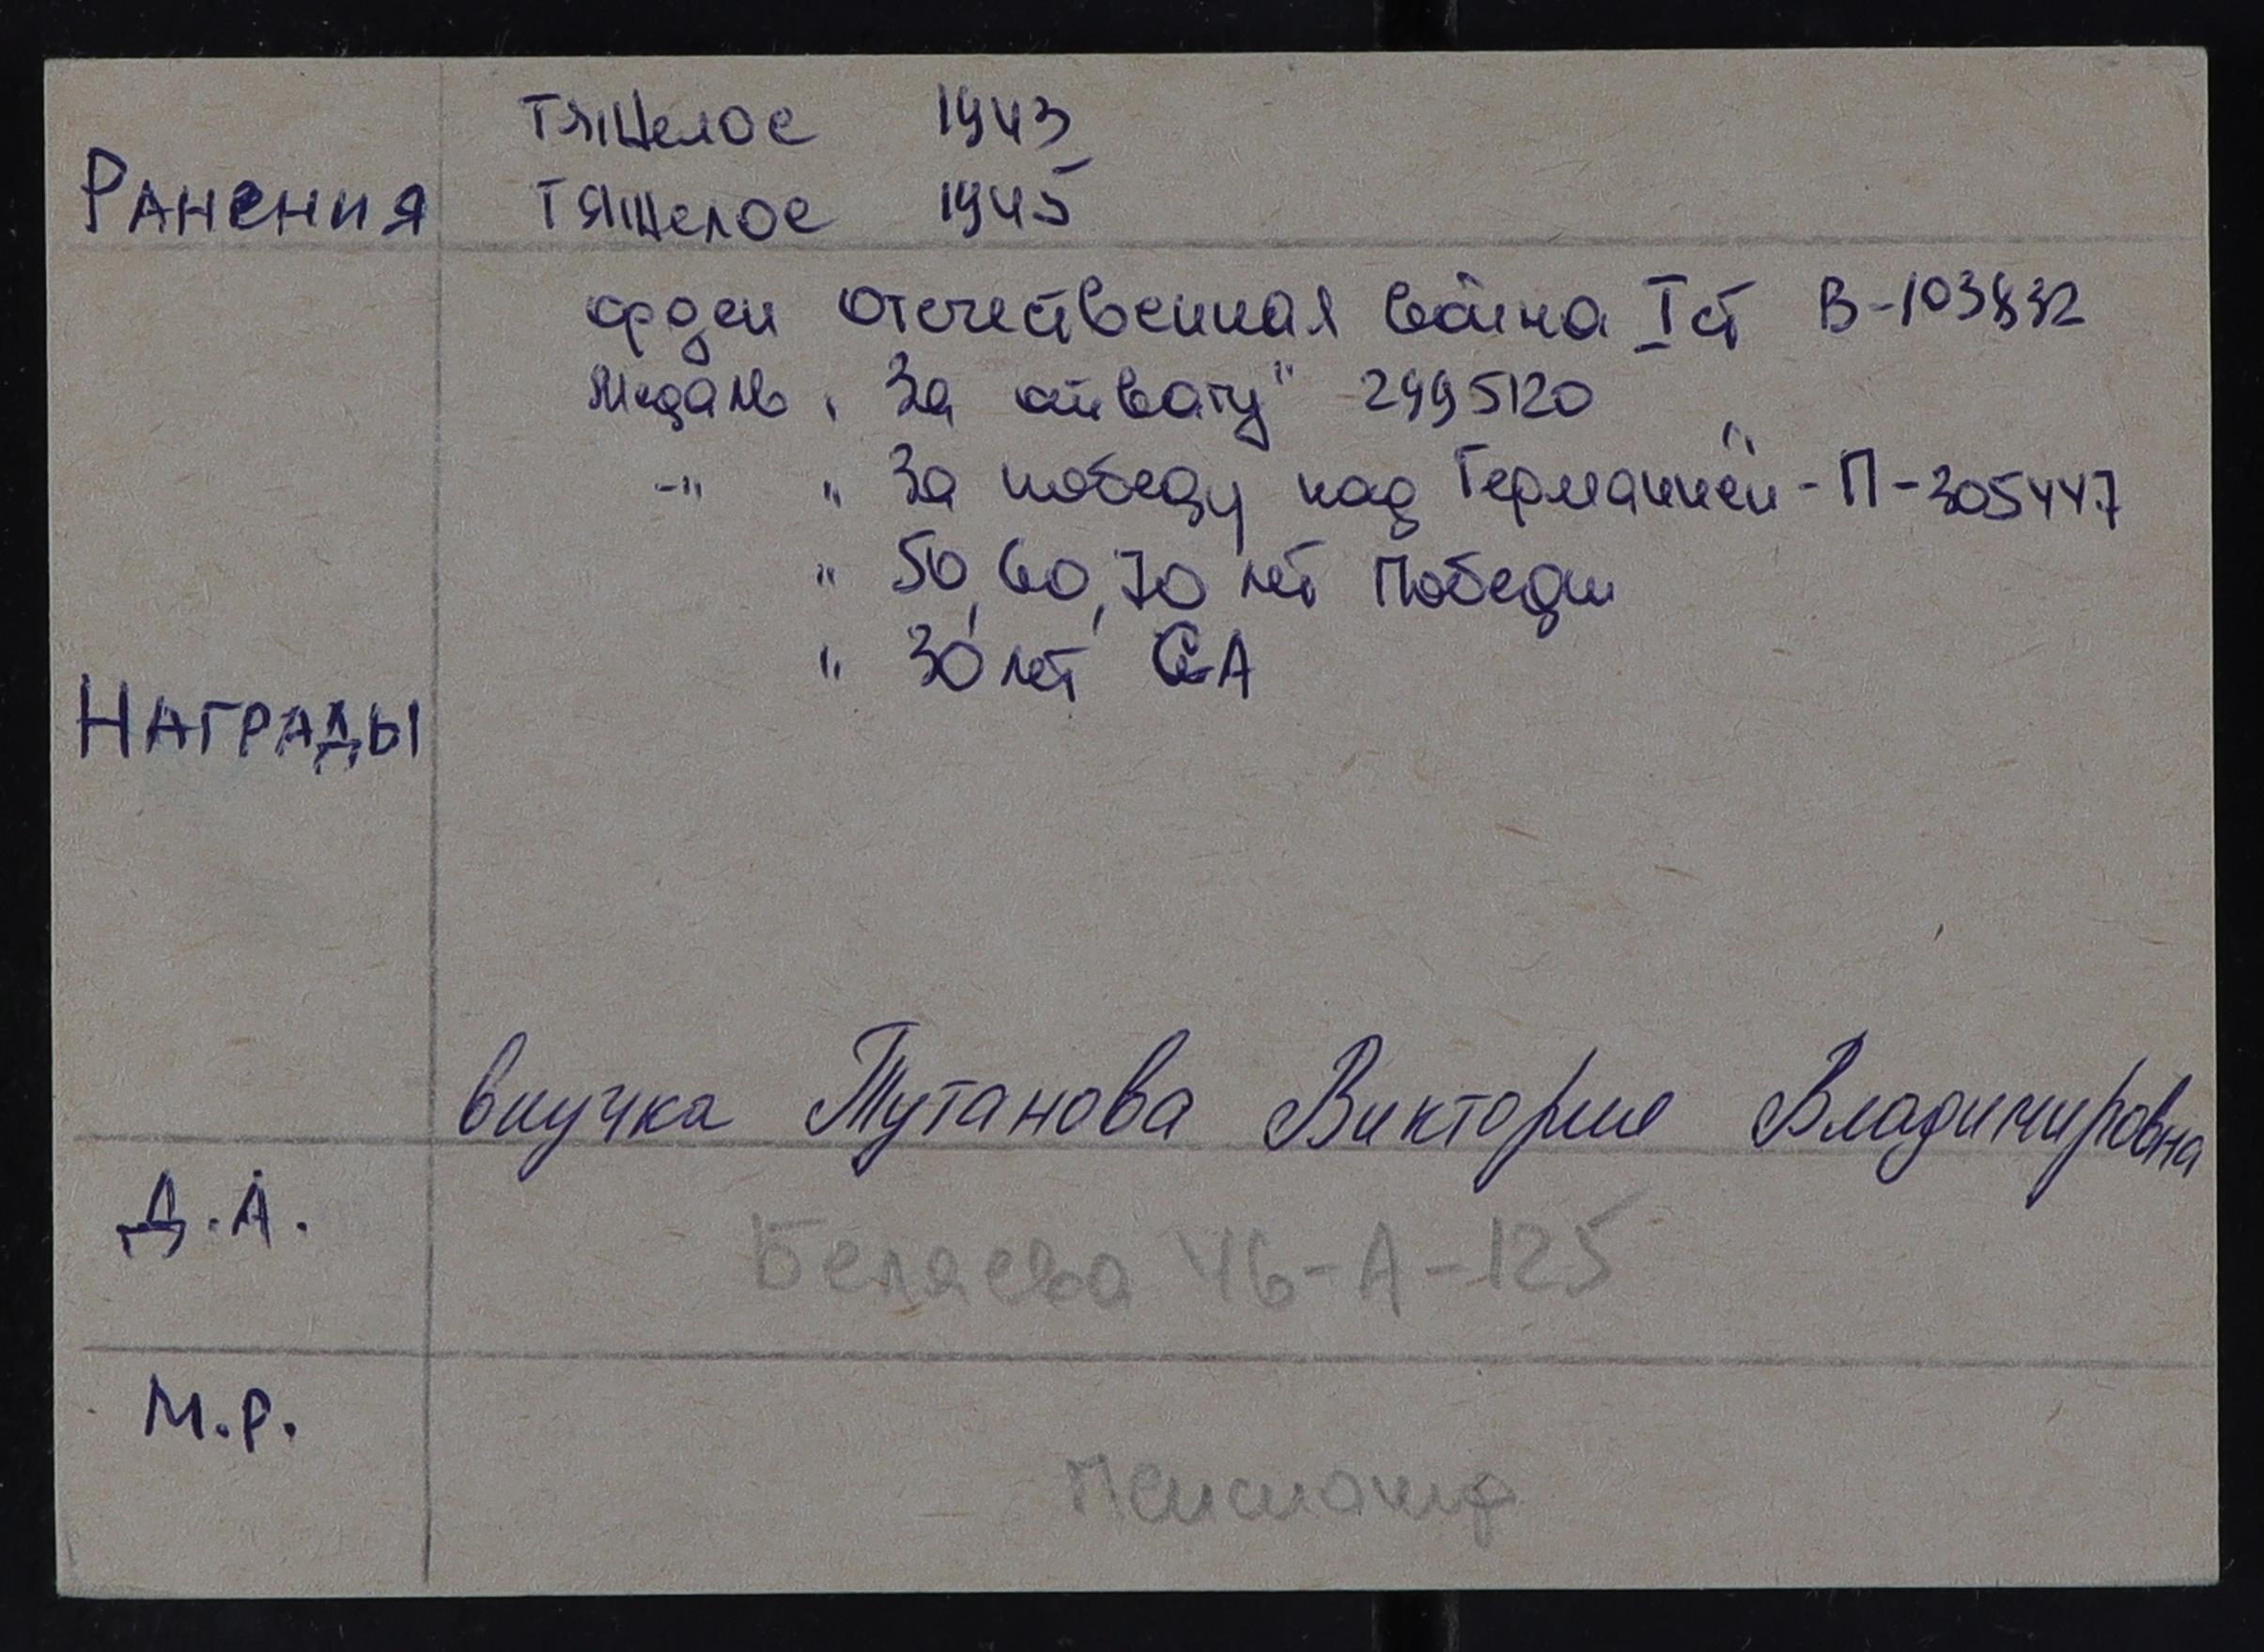 Ранения
тяжелое 1943
тяжелое 1945
Награды
орден Отечественная война I ст В-103832
Медаль „За отвагу" 2995120
-"- „За победу над Германией" - П-305447
" 50, 60, 70 лет Победы
" 30 лет СА
внучка Тутанова Виктория Владимировна
Д.А.
Беляева 46-А-125
М.Р.
Пенсионер